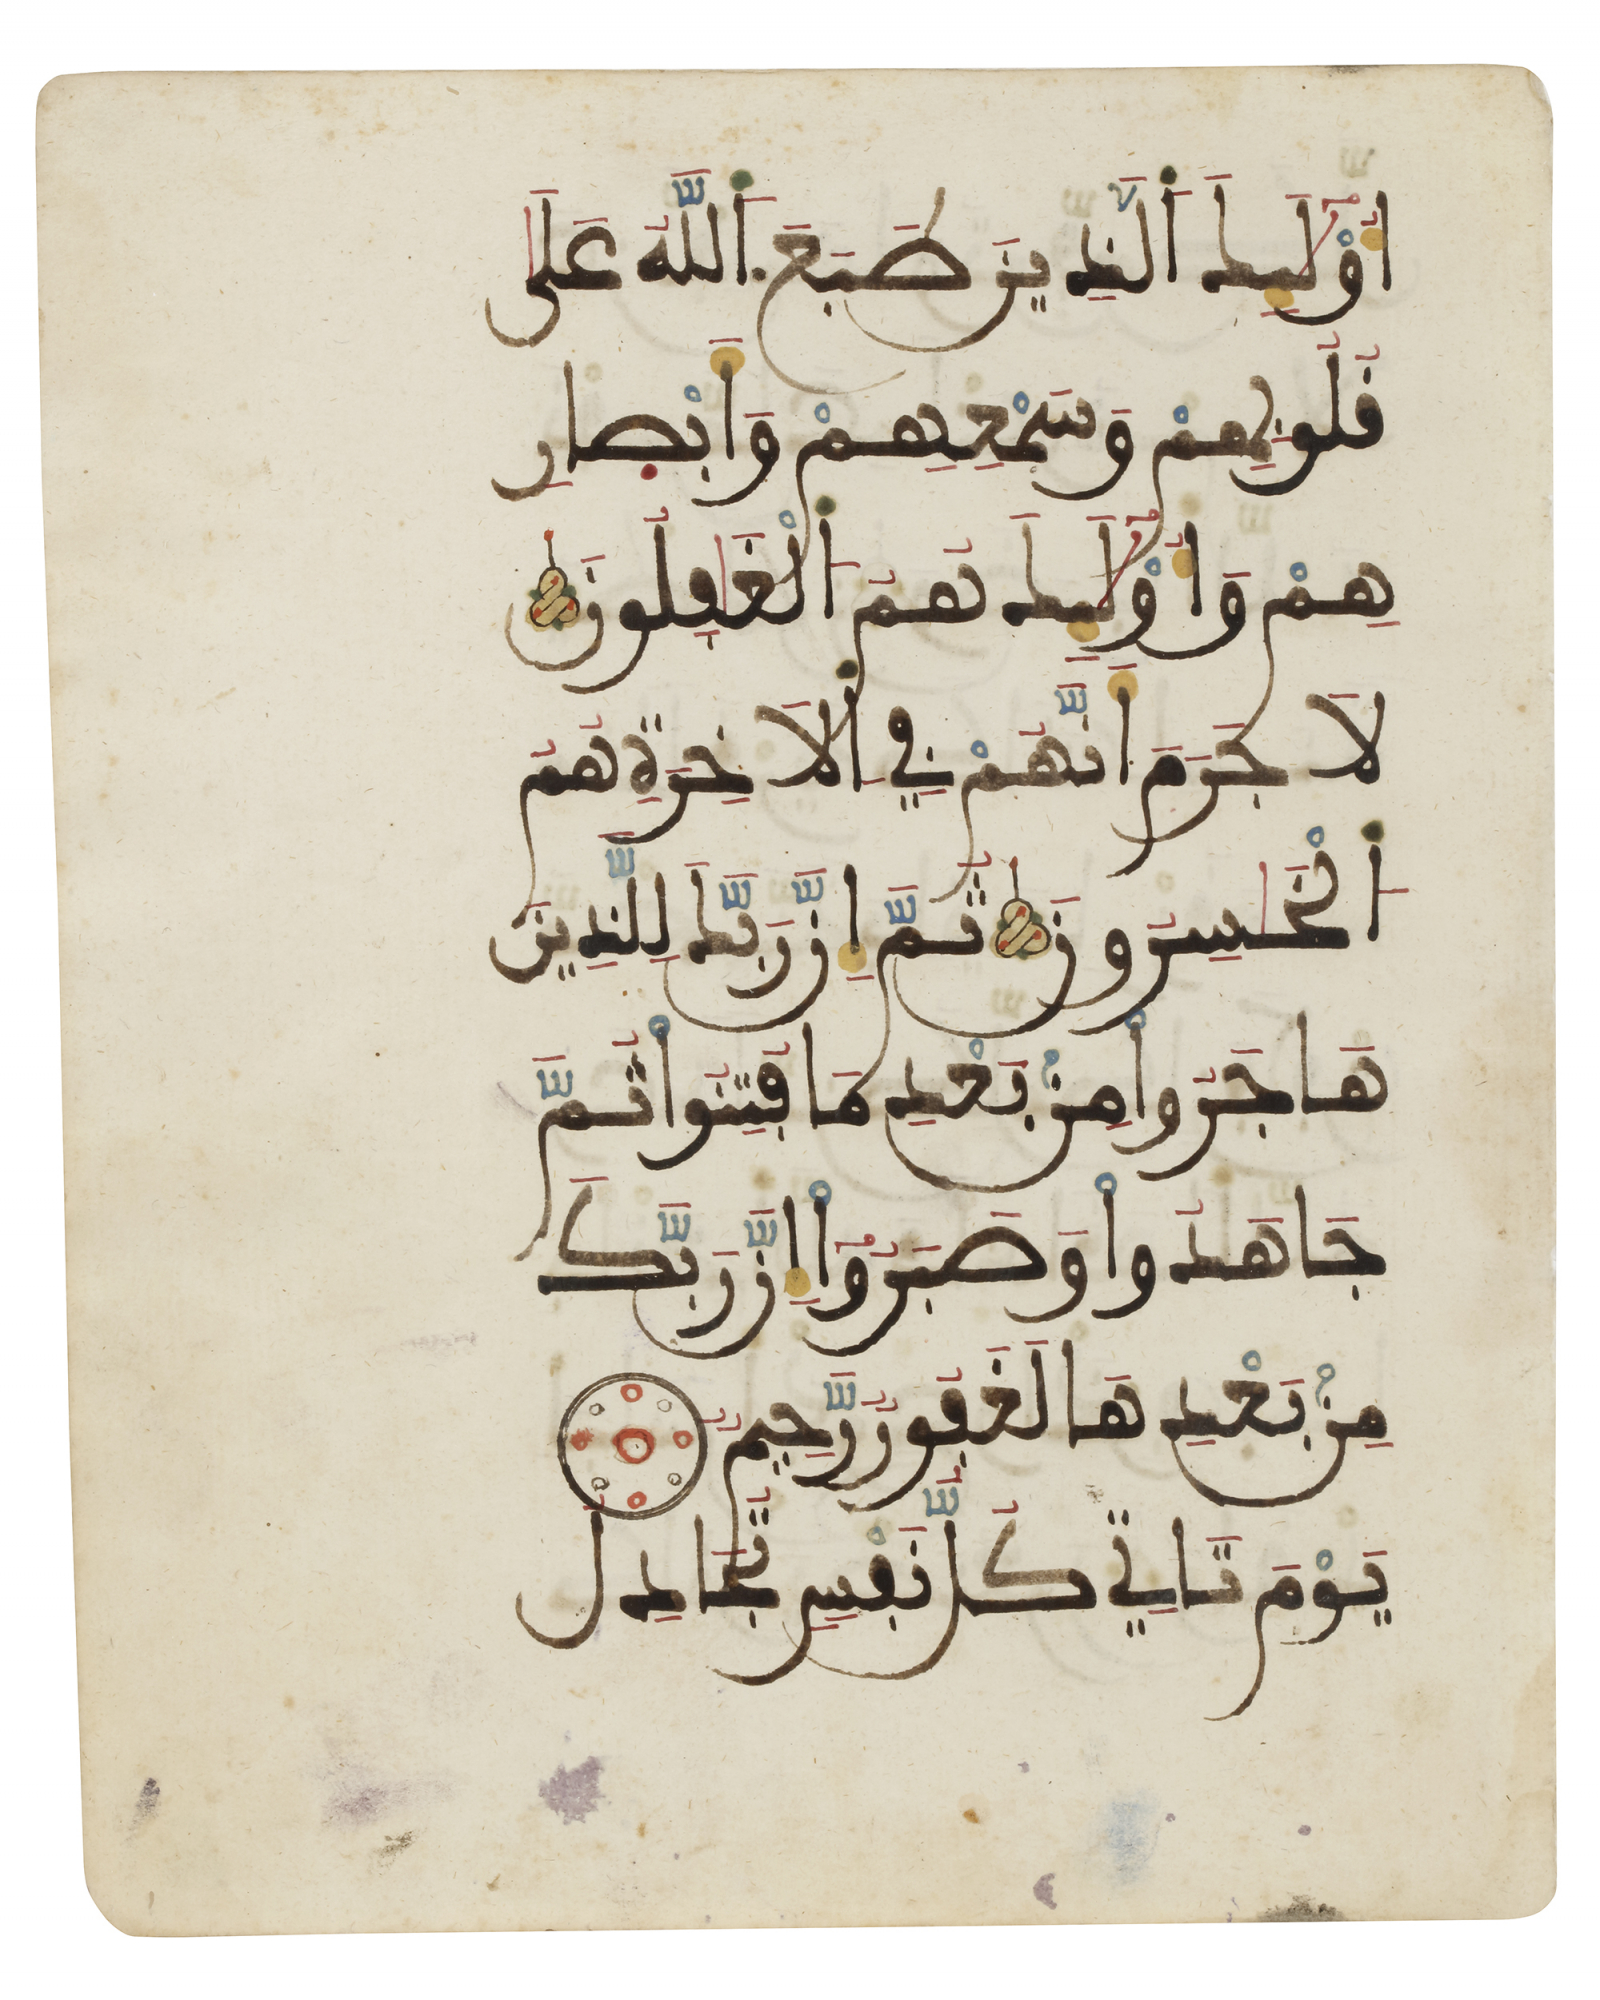 أُوْلَٰٓئِكَ اَ۬لذِينَ طَبَعَ اَ۬للَّهُ عَلَىٰ
قُلُوبِهِمْ وَسَمْعِهِمْ وَأَبْصٰ۪رِ
هِمْ وَأُوْلَٰٓئِكَ هُمُ اُ۬لْغَٰفِلُونَ
لَا جَرَمَ أَنَّهُمْ فِي اِ۬لَاخِرَةِ هُمُ
اُ۬لْخَٰسِرُونَ ثُمَّ إِنَّ رَبَّكَ لِلَّذِينَ
هَاجَرُواْ مِنۢ بَعْدِ مَا فُتِنُواْ ثُمَّ
جَاهَدُواْ وَصَبَرُوٓاْ إِنَّ رَبَّكَ
مِنۢ بَعْدِهَا لَغَفُورٌ رَّحِيمٌ
يَوْمَ تَاتِي كُلُّ نَفْسٍ تُجَادِلُ